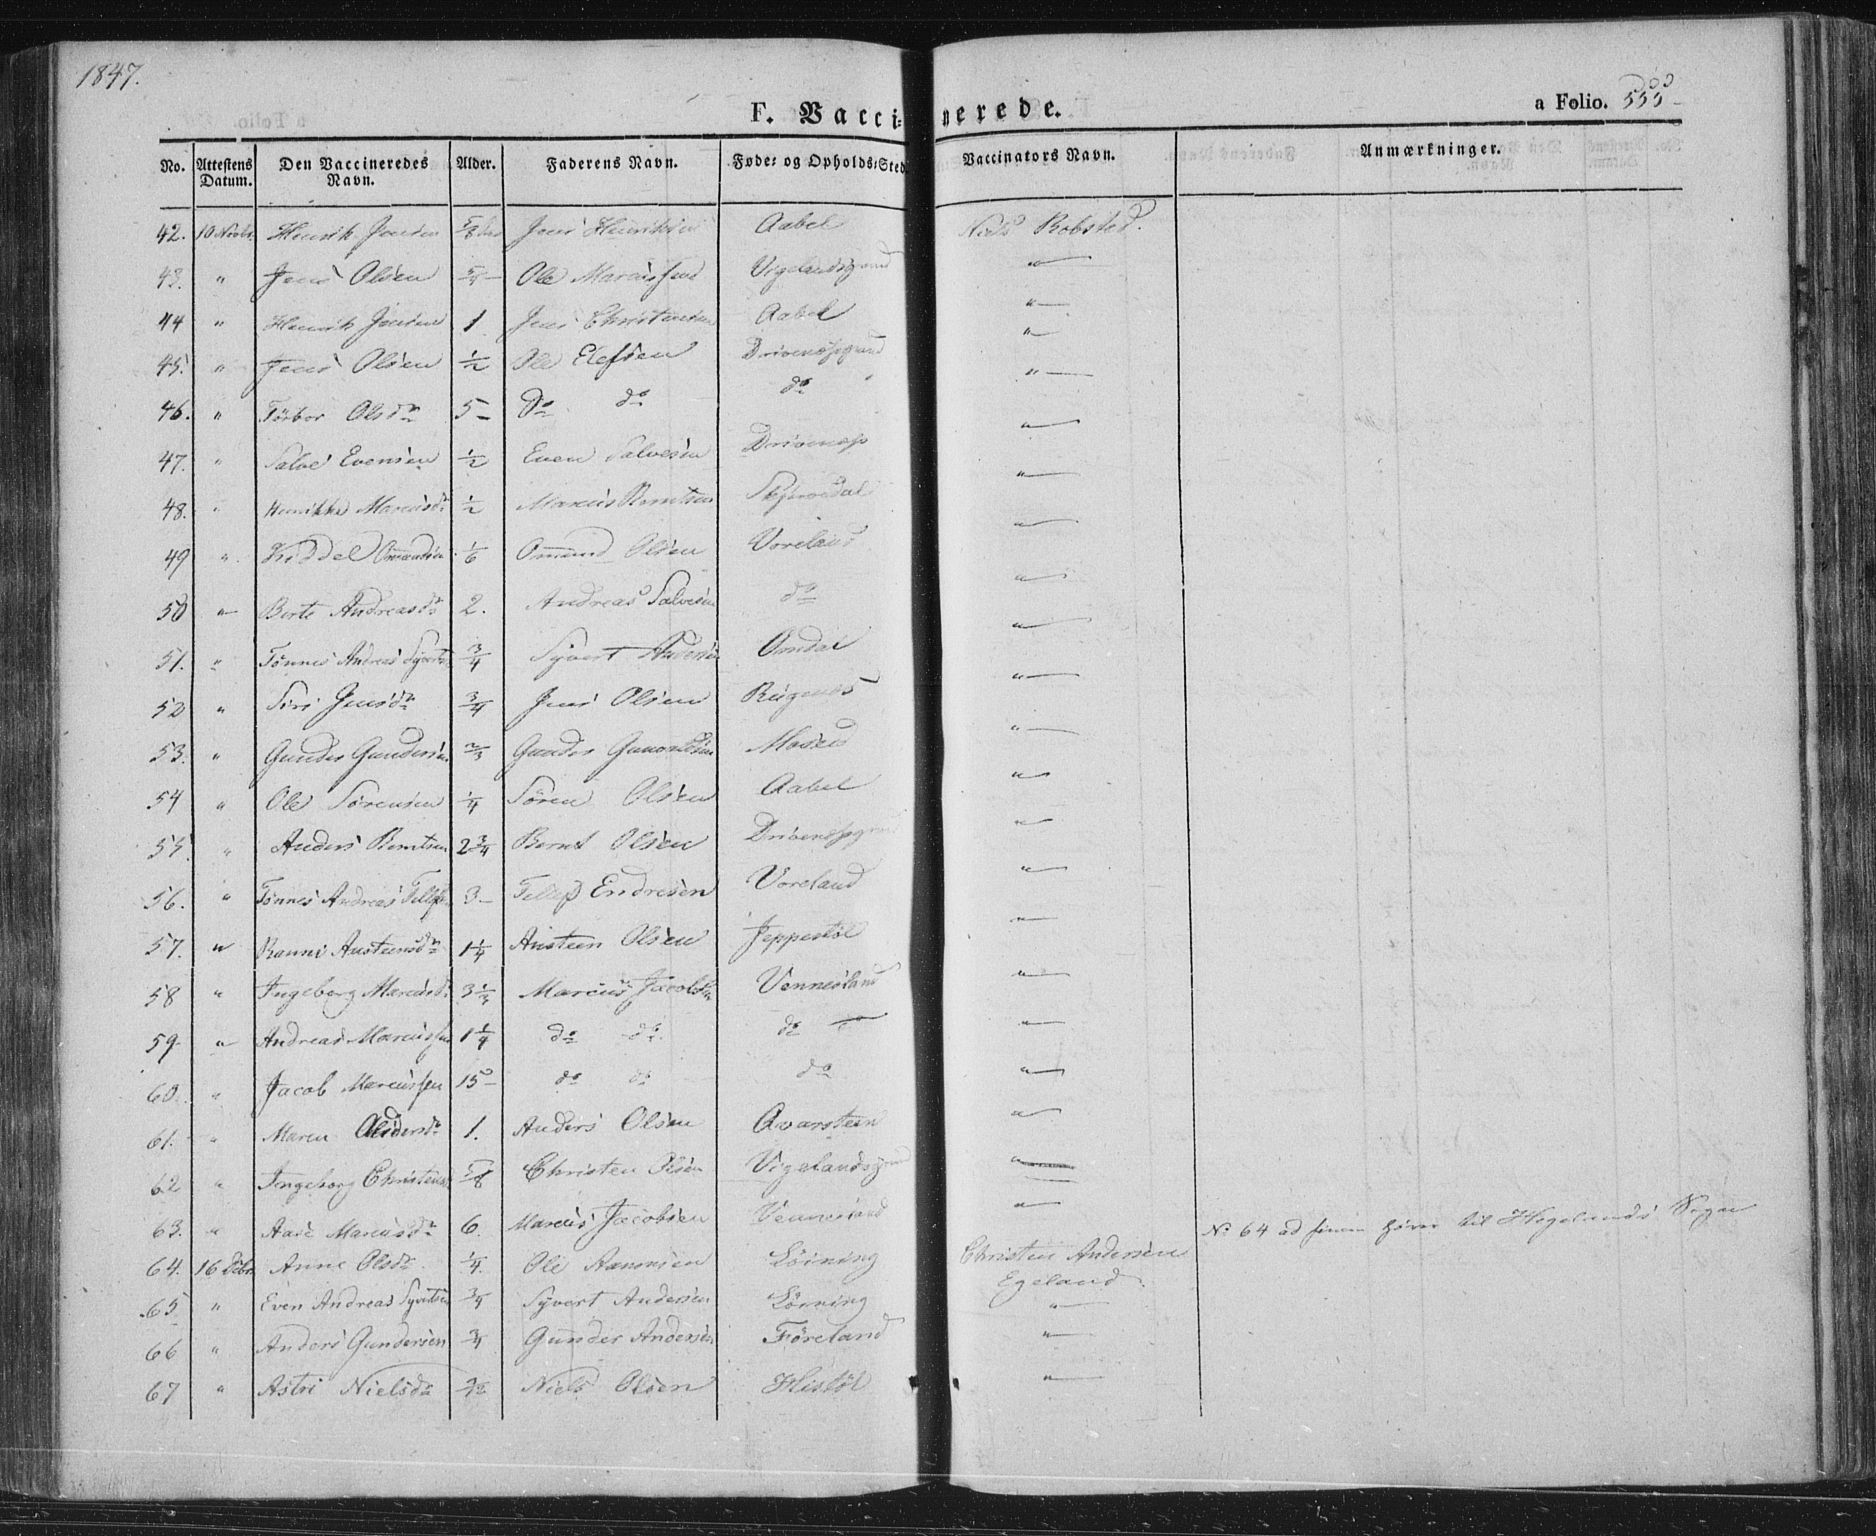 1847.
F. Vaccinerede.
a Folio. 555
No. Attestens Datum. Den Vaccineredes Navn. Alder. Faderens Navn. Føde- og Opholds-Sted Vaccinators Navn. Anmærkninger.
42. 10 Novbr Henrik Jensen 5/8 Jens Henriksen Aabel Niels Robstad.
43. " Jens Olsen 5/4 Ole Marcussen Vigelandsgrund "
44 " Henrik Jensen 1 Jens Christensen Aabel "
45. " Jens Olsen 1/2 Ole Elefsen Drivenesgrund "
46. " Torbor Olsdr 5 Do do do "
47. " Salve Evensen 1/2 Even Salvesen Drivenes "
48. " Henrikke Marcusdr 1/2 Marcus Berntsen "
49 " Omundsen 1/6 Omund Olsen Voreland "
50 " Berte Andreasdr 2. Andreas Salvesen do "
51. " Tønnes Andreas Syvertsen 3/4 Syvert Andersen Omdal "
52 " Siri Jensdr 3/4 Jens Olsen "
53. " Gunder Gundersen 2/3 Gunder "
54 " Ole Sørensen 1/4 Søren Olsen Aabel "
55. " Anders Berntsen 2 3/4 Bernt Olsen Drivenesgrund "
56. " Tønnes Andreas Tellefsen 3 Tellef Endresen Voreland "
57. " Ranni Austeensdr 1 1/4 Austeen Olsen Jepperstøl "
58 " Ingeborg Marcusdr 3 1/3 Marcus Jacobsen Vennesland "
59. " Andreas Marcussen 1 1/4 do do do "
60. " Jacob Marcussen 15 do do do "
61. " Maren Andersdr 1. Anders Olsen Avarsteen "
62 " Ingeborg Christensdr 5/8 Christen Olsen Vigelandsgrund "
63. " Marcusdr 6. Marcus Jacobsen Vennesland "
No 64 ad finem hører til Hegelands Sogn
64. 16 Debr Anne Olsdr 1/4. Ole Aanonsen Løining Christen Andersen
Egeland
65 " Even Andreas Syvertsen 3/4 Syvert Andersen Løining "
66 " Anders Gundersen 3/4 Gunder Andersen Føreland "
67 " Astri Nielsdr Niels Olsen "